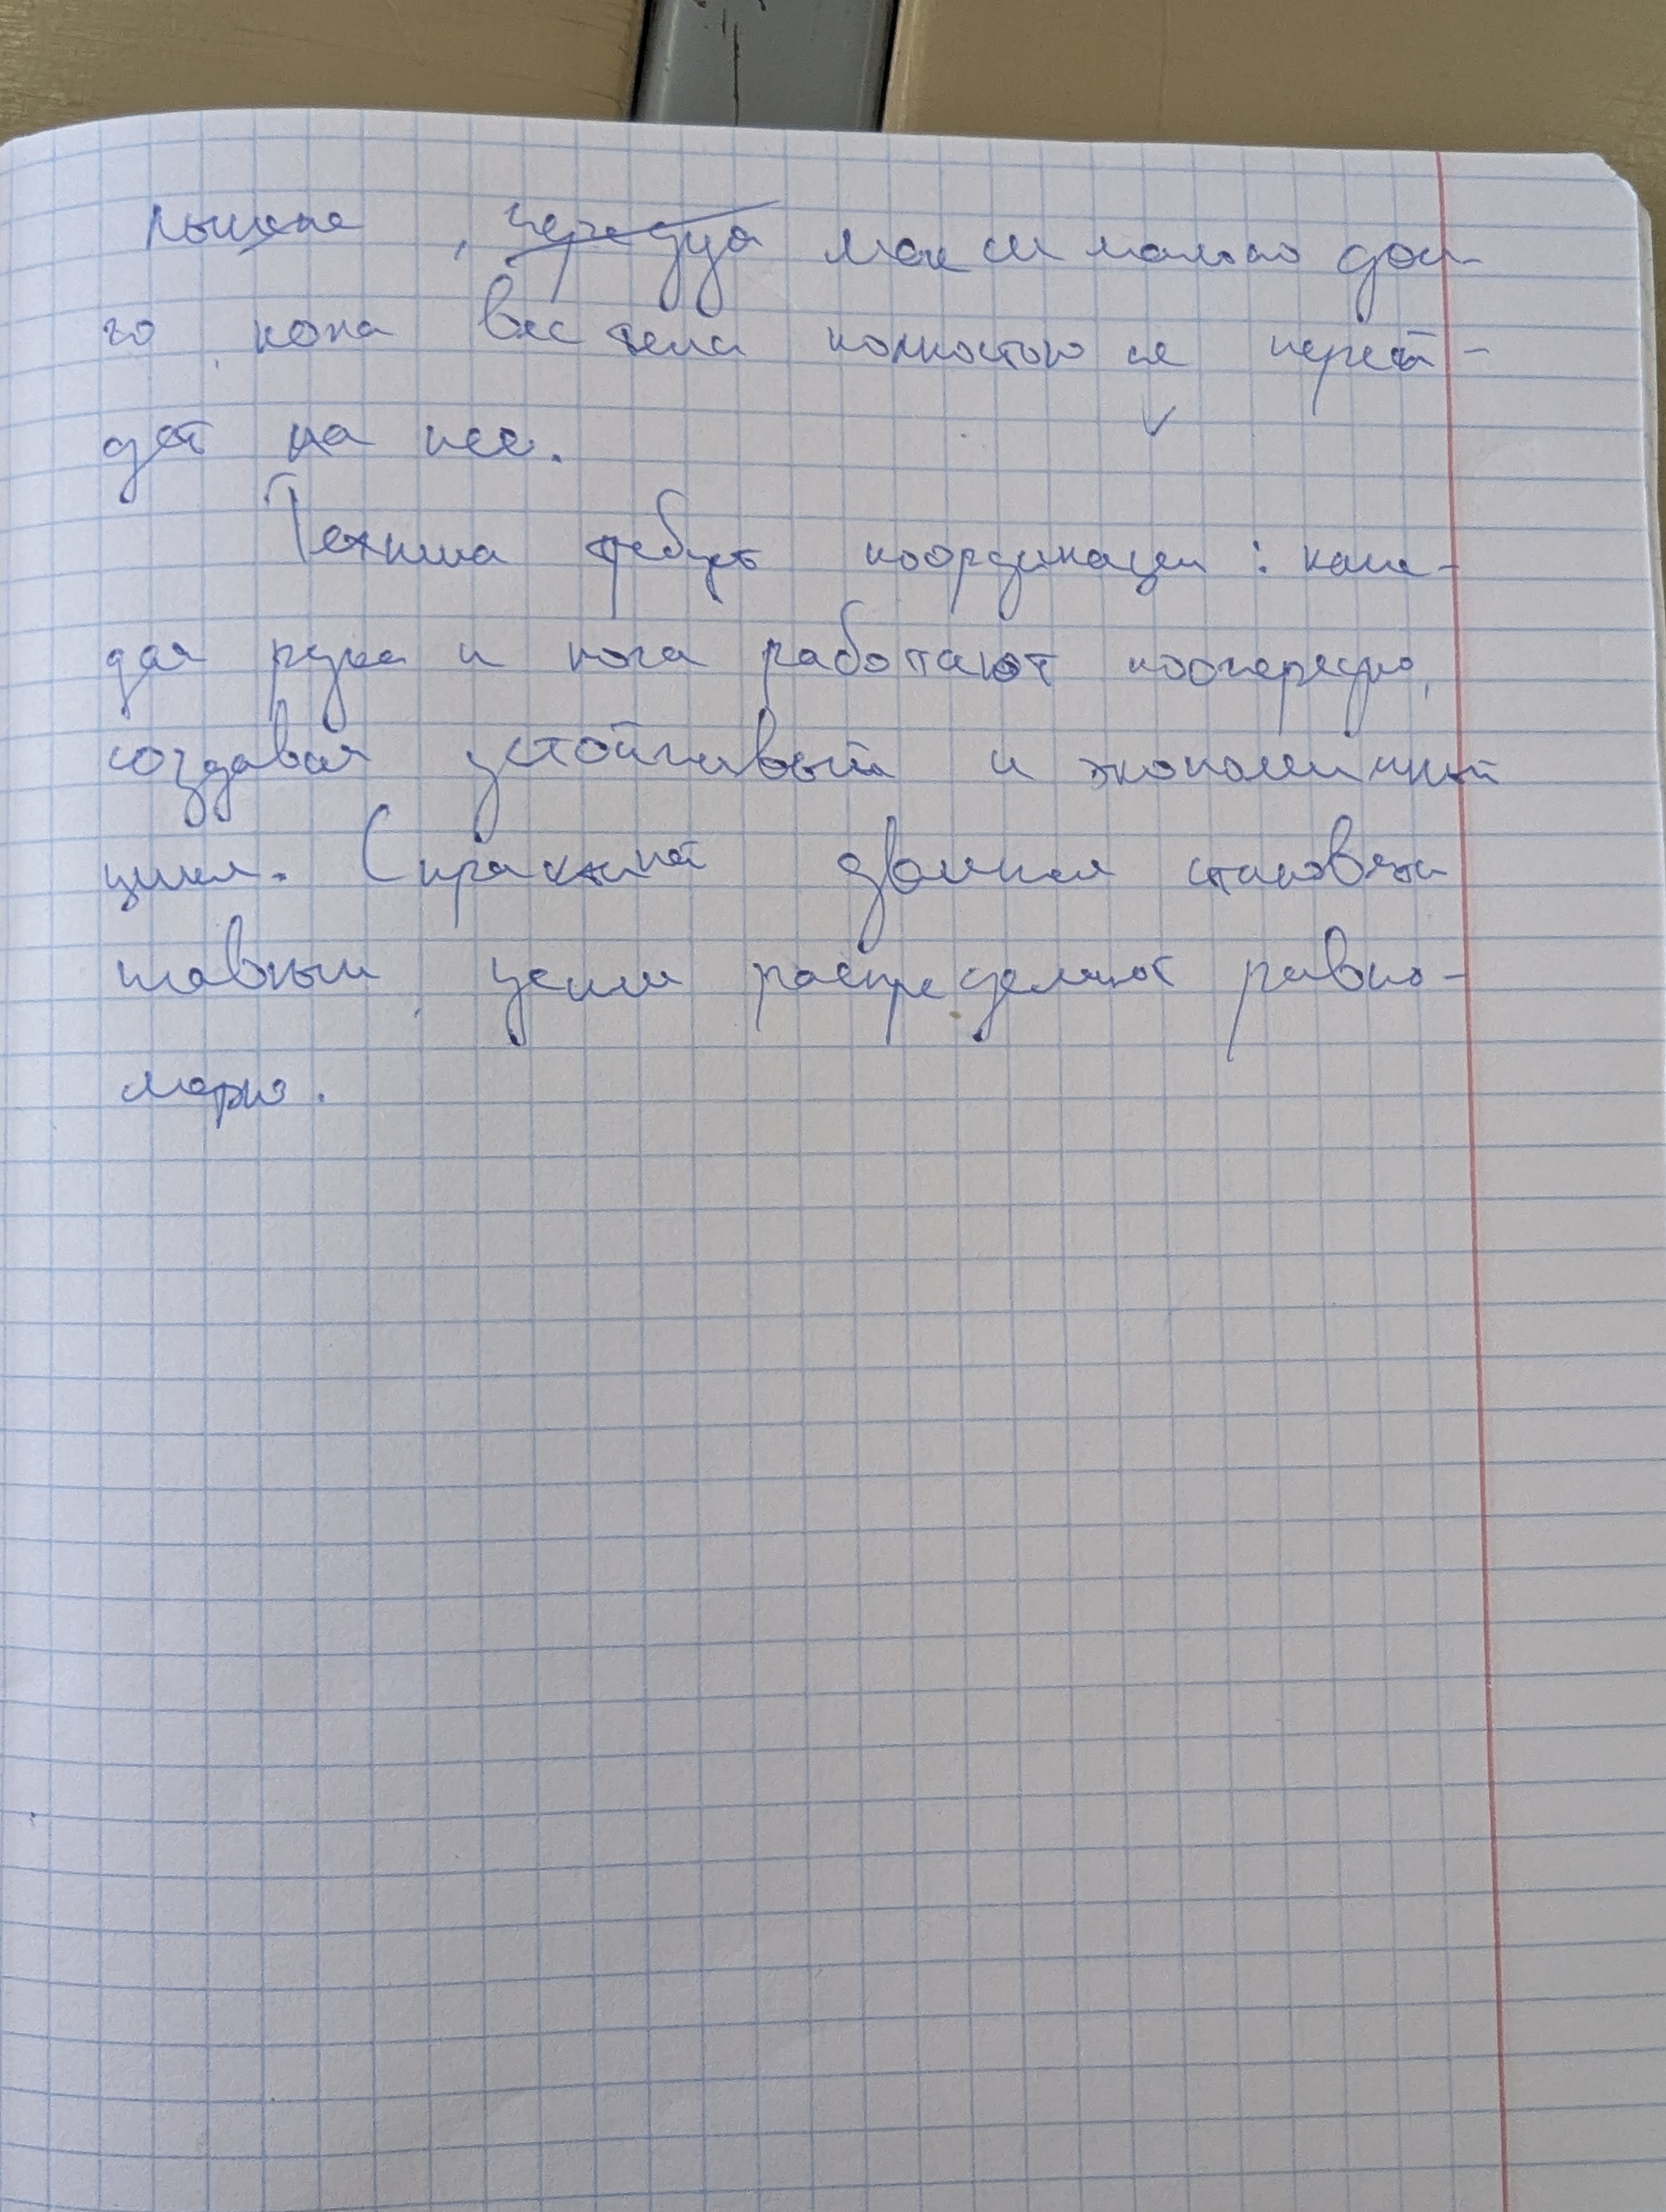 лыжне , чередуя максимально дол-
го, пока вес тела полностью не перей-
дет на нее.
Техника требует координации : каж-
дая рука и нога работают поочередно,
создавая устойчивый и экономичный
цикл. С практикой движения становятся
плавными, усилия распределяют равно-
мерно.